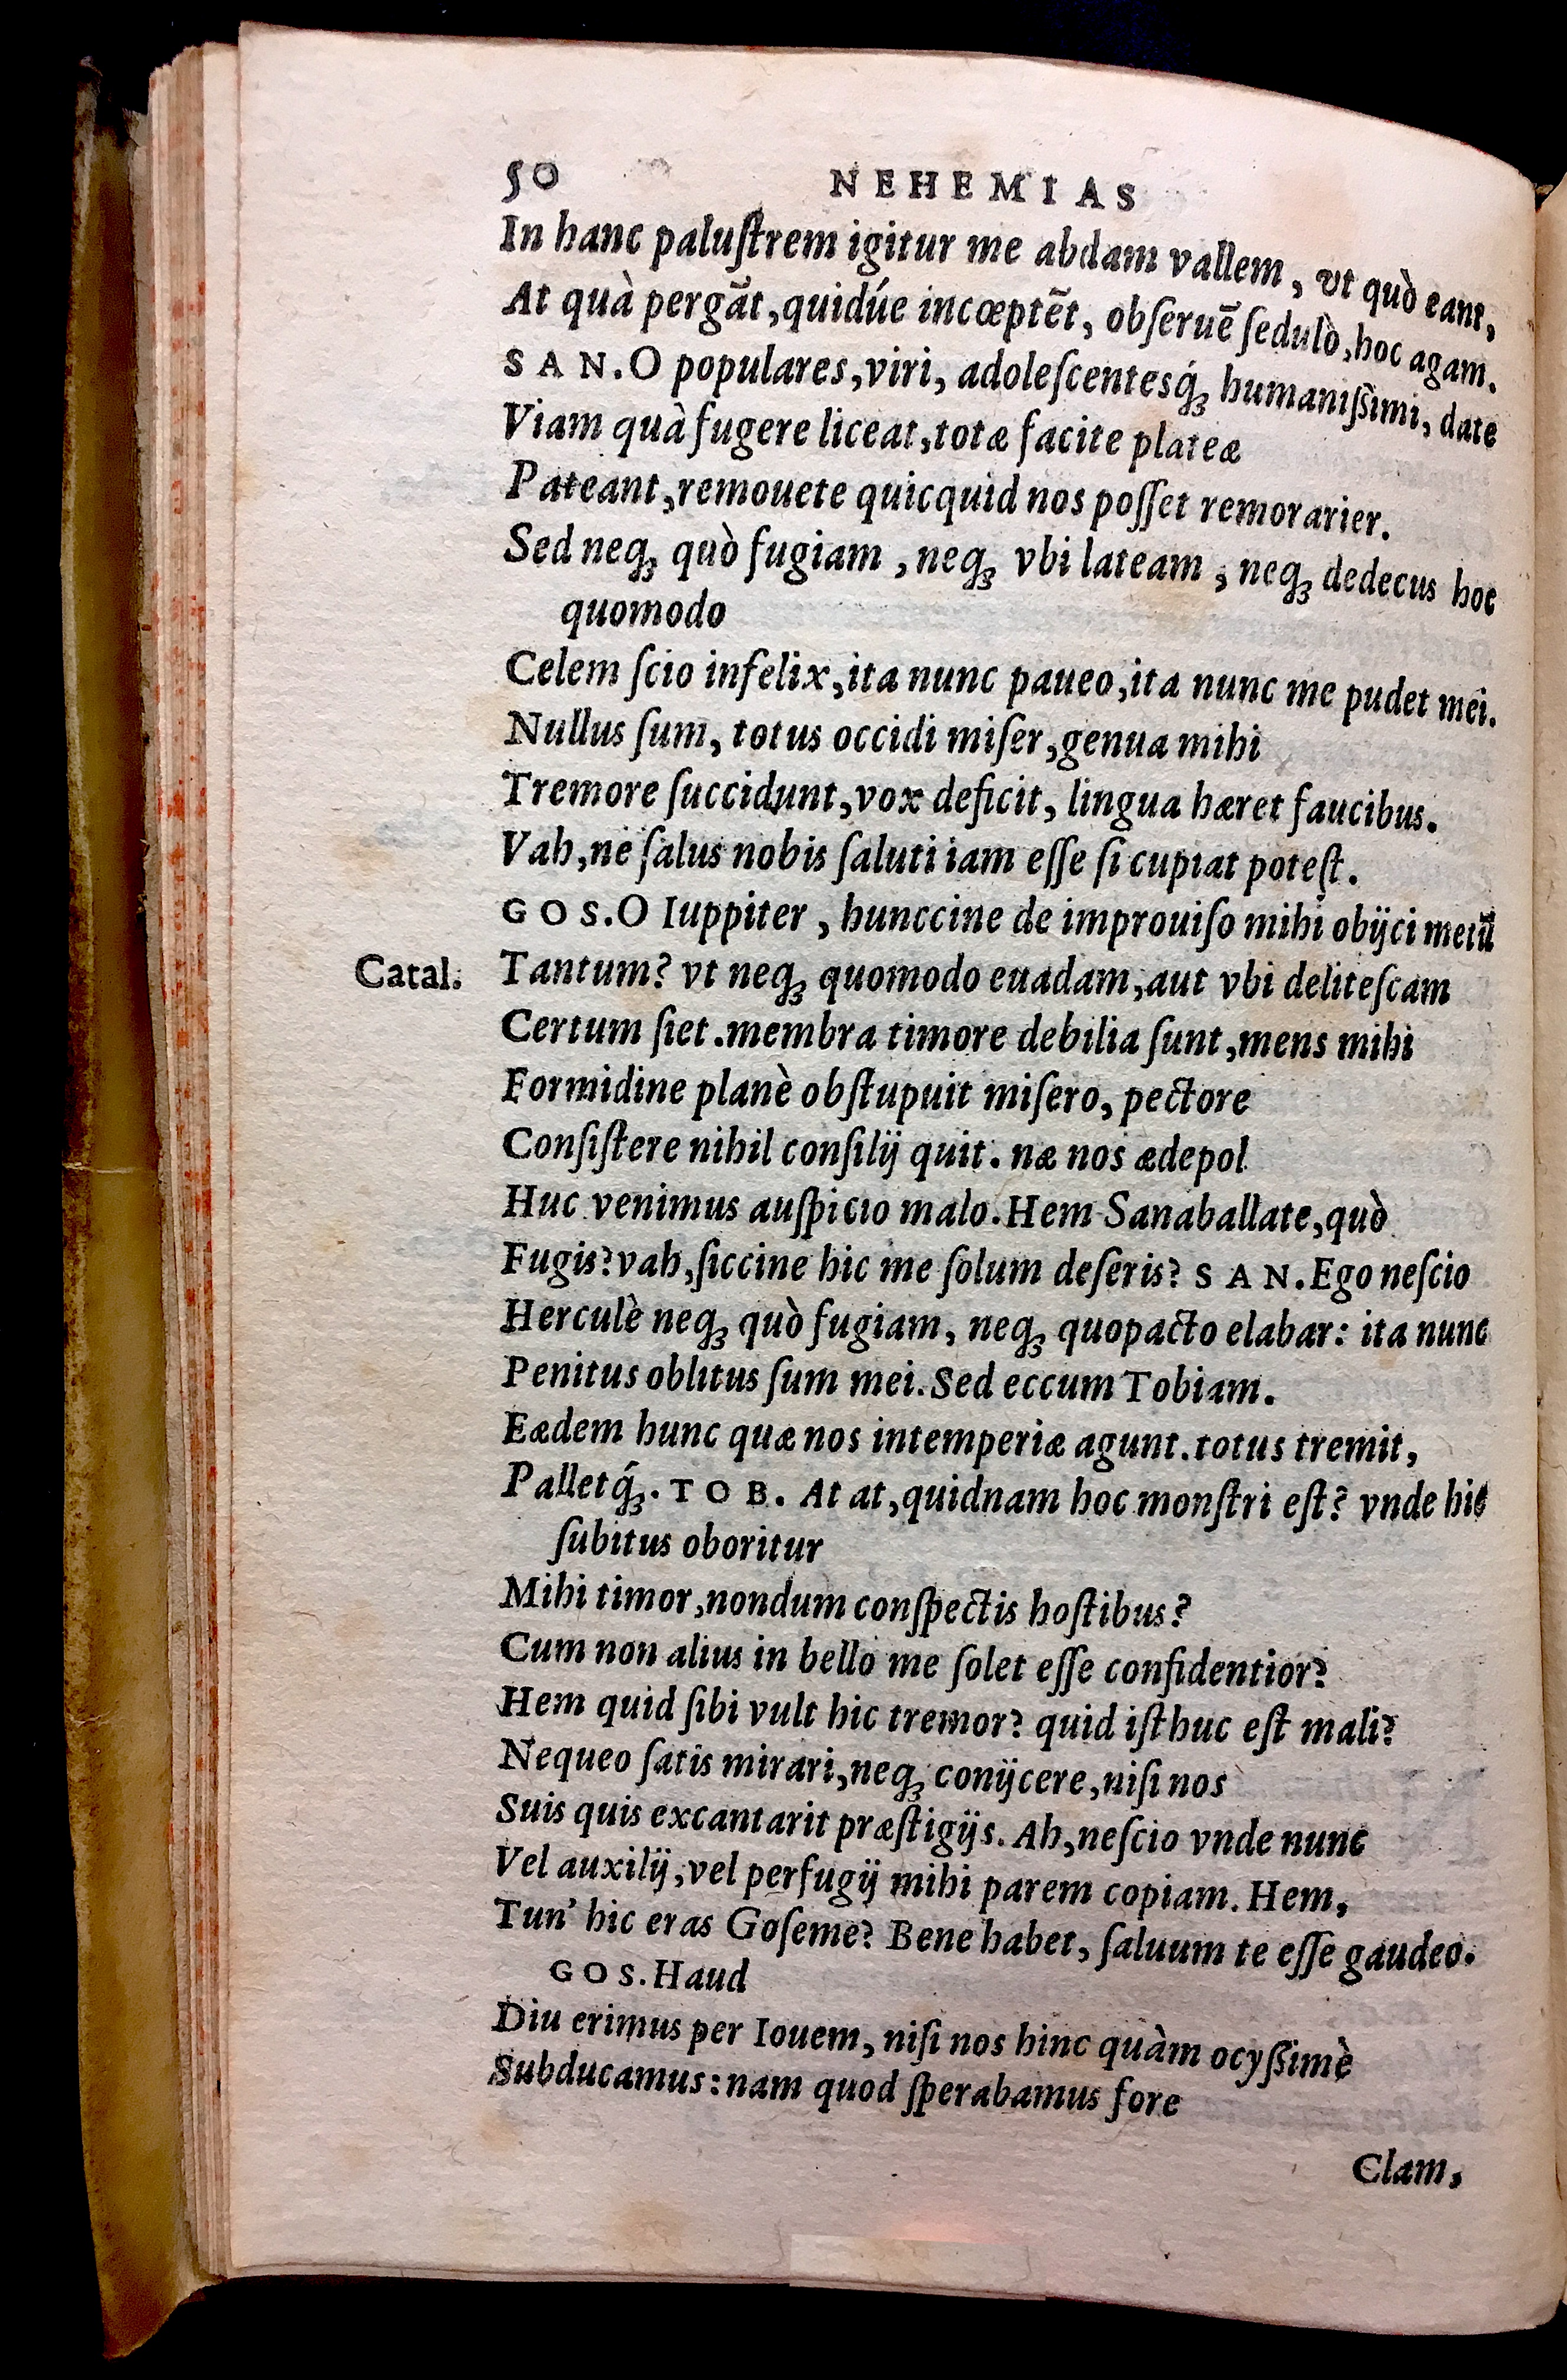 50 NEHEMIAS
In hanc paluſtrem igitur me abdam vallem, vt quò eant,
At quà pergāt, quidúe incœptēt, obſeruē ſedulò, hoc agam.
SAN. O populares, viri, adoleſcentesq́ꝫ humaniſsimi, date
Viam quà fugere liceat, totæ facite plateæ
Pateant, remouete quicquid nos poſſet remorarier.
Sed neqꝫ quò fugiam, neqꝫ vbi lateam, neqꝫ dedecus hoc
quomodo
Celem ſcio infelix, ita nunc paueo, ita nunc me pudet mei.
Nullus ſum, totus occidi miſer, genua mihi
Tremore ſuccidunt, vox deficit, lingua hæret faucibus.
Vah, ne ſalus nobis ſaluti iam eſſe ſi cupiat poteſt.
GOS. O Iuppiter, hunccine de improuiſo mihi obijci metū
Catal. Tantum? vt neqꝫ quomodo euadam, aut vbi deliteſcam
Certum ſiet. membra timore debilia ſunt, mens mihi
Formidine planè obſtupuit miſero, pectore
Conſiſtere nihil conſilij quit. næ nos ædepol
Huc venimus auſpicio malo. Hem Sanaballate, quò
Fugis? vah, ſiccine hic me ſolum deſeris? SAN. Ego neſcio
Herculè neqꝫ quò fugiam, neqꝫ quopacto elabar: ita nunc
Penitus oblitus ſum mei. Sed eccum Tobiam.
Eædem hunc quæ nos intemperiæ agunt. totus tremit,
Palletq́ꝫ. TOB. At at, quidnam hoc monſtri eſt? vnde hic
ſubitus oboritur
Mihi timor, nondum conſpectis hoſtibus?
Cum non alius in bello me ſolet eſſe confidentior?
Hem quid ſibi vult hic tremor? quid iſthuc eſt mali?
Nequeo ſatis mirari, neqꝫ conijcere, niſi nos
Suis quis excantarit præſtigijs. Ah, neſcio vnde nunc
Vel auxilij, vel perfugij mihi parem copiam. Hem,
Tun' hic eras Goſeme? Bene habet, ſaluum te eſſe gaudeo.
GOS. Haud
Diu erimus per Iouem, niſi nos hinc quàm ocyſsimè
Subducamus: nam quod ſperabamus fore
Clam,